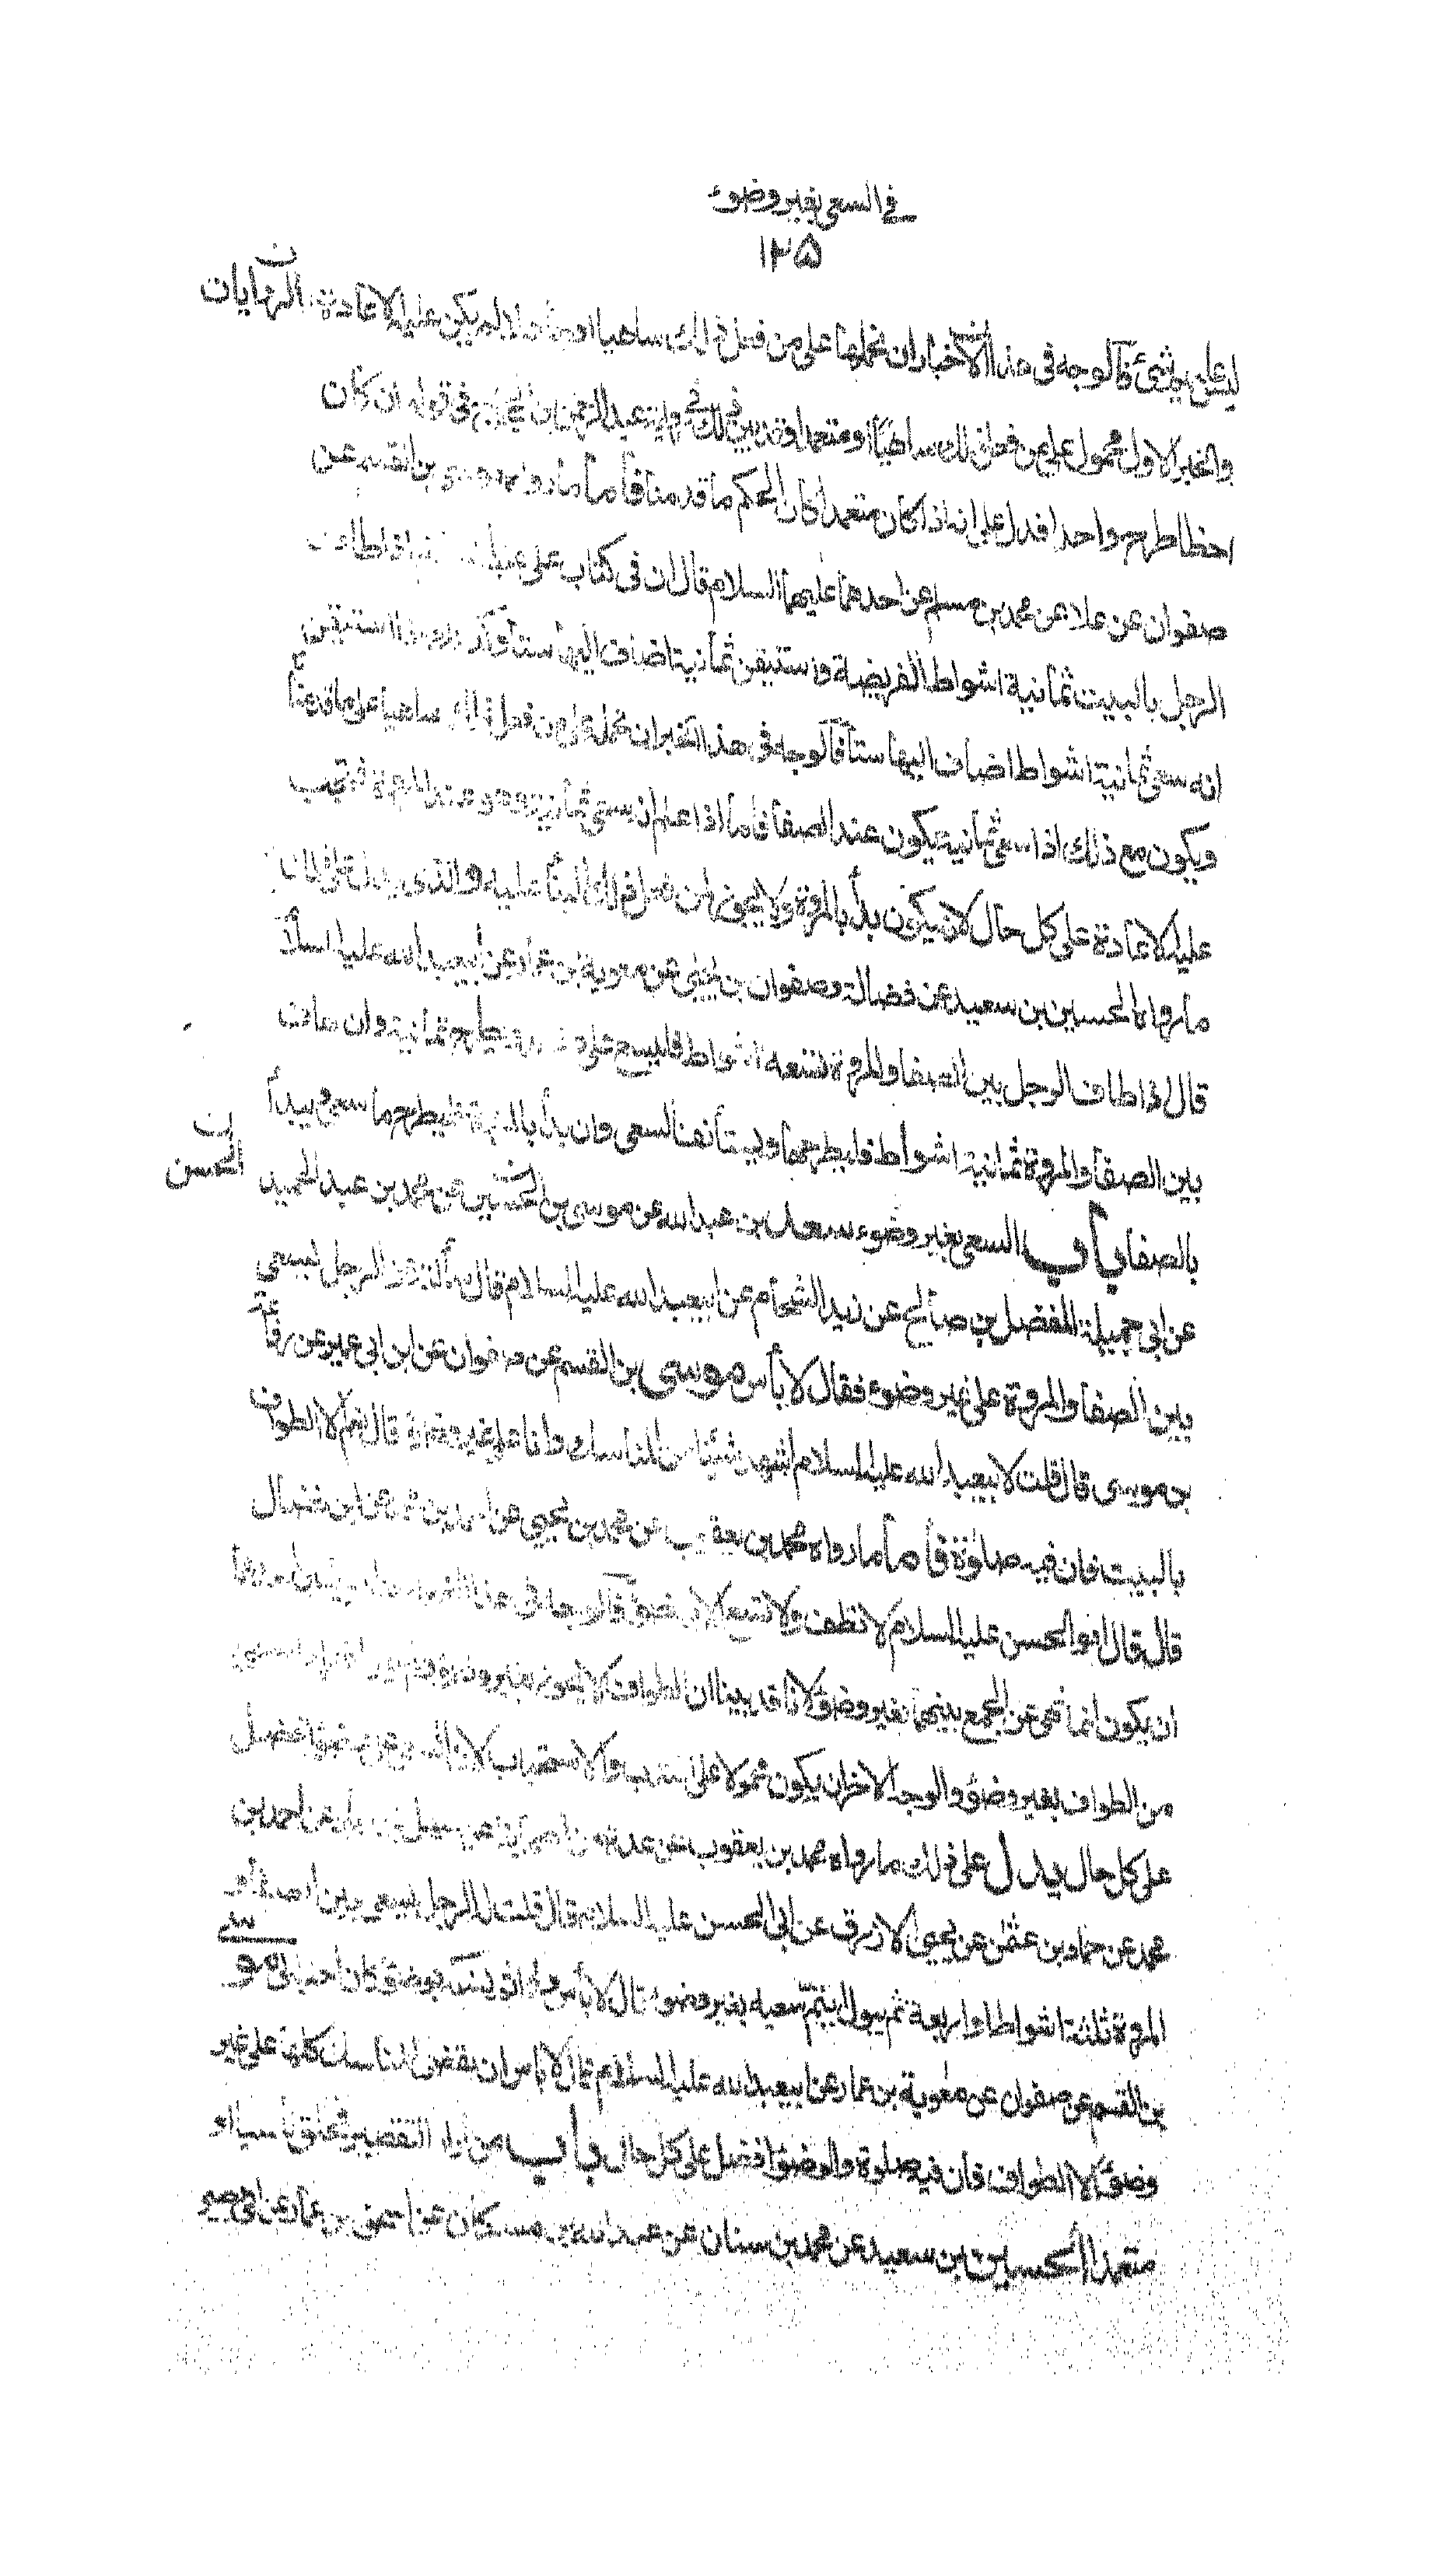 في السعى بغير وضوء
١٢٥
ليس عليه شئ فالوجه فى هذه الاخبار ان نحملها على من فعل ذلك ساهيا او لم يكن عليه الاعادة الزيادات
والخبر الاول محمول على من فعل ذلك متعمدا وقد بين ذلك فى رواية عبد الرحمن بن الحجاج فى قوله ان كان
اخطا اطرح واحدا فدل على انه اذا كان متعمدا كان الحكم ما قدمناه فأما ما رواه موسى بن القسم عن
صفوان عن علا عن محمد بن مسلم عن احدهما عليهما السلام قال ان فى كتاب على عليه اذا طاف
الرجل بالبيت ثمانية اشواط الفريضة واستيقن ثمانية اضاف اليها ستا وكذلك اذا استيقن
انه سعى ثمانية اشواط اضاف اليها ستا فالوجه فى هذا الخبر ان نحمله على من فعل ذلك ساهيا على ما قدمناه
ويكون مع ذلك اذا سعى ثمانية يكون عند الصفا فاما اذا علم انه سعى ثمانية وهو عند المروة فتجب
عليه الاعادة على كل حال لانه يكون بدأ بالمروة ولا يجوز لمن فعل ذلك البناء عليه والذى يدل على ذلك
ما رواه الحسين بن سعيد عن فضالة وصفوان بن يحيى عن معوية بن عمار عن ابيعبد الله عليه السلام
قال اذا طاف الرجل بين الصفا والمروة تسعة اشواط فليسع على واحد وليطرح ثمانية وان طاف
بين الصفا والمروة ثمانية اشواط فليطرحها وليستأنف السعى وان بدأ بالمروة فليطرح ما سعى ويبدأ
بالصفا باب السعى بغير وضوء سعد بن عبد الله عن موسى بن الحسين عن محمد بن عبد الحميد
الحسن
عن ابى جميلة المفضل بن صالح عن زيد الشحام عن ابيعبد الله عليه السلام قال سألته عن الرجل يسعى
بين الصفا والمروة على غير وضوء فقال لا بأس موسى بن القسم عن صفوان عن ابن ابى عمير عن رفاعة
بن موسى قال قلت لابيعبد الله عليه السلام اشهد شيئا من المناسك وانا على غير وضوء قال نعم الا الطواف
بالبيت فان فيه صلوة فأما ما رواه محمد بن يعقوب عن محمد بن يحيى عن احمد بن محمد عن ابن فضال
قال قال ابو الحسن عليه السلام لا تطف ولا تسع الا بوضوء فالوجه فى هذا الخبر
ان يكون انما نهى عن الجمع بينهما بغير وضوء لانا قد بينا ان الطواف لا يجوز بغير وضوء
من الطواف بغير وضوء والوجه الاخر ان يكون محمولا على الندب والاستحباب لان السعى على وضوء افضل
على كل حال يدل على ذلك ما رواه محمد بن يعقوب عن عدة من اصحابنا عن سهل بن زياد عن احمد بن
محمد عن حماد بن عثمان عن يحيى الازرق عن ابى الحسن عليه السلام قال قلت له الرجل يسعى بين الصفا و
المروة ثلثة اشواط او اربعة ثم يبول ايتم سعيه بغير وضوء قال لا بأس ولو اتم نسكه بوضوء كان احب الى موسى
بن القسم عن صفوان عن معاوية بن عمار عن ابيعبد الله عليه السلام قال لا باس ان تقضى المناسك كلها على غير
وضوء الا الطواف فان فيه صلوة والوضوء افضل على كل حال باب من اراد التقصير فحلق ناسيا او
متعمدا الحسين بن سعيد عن محمد بن سنان عن عبد الله بن مسكان عن اسحق بن عمار عن ابى بصير